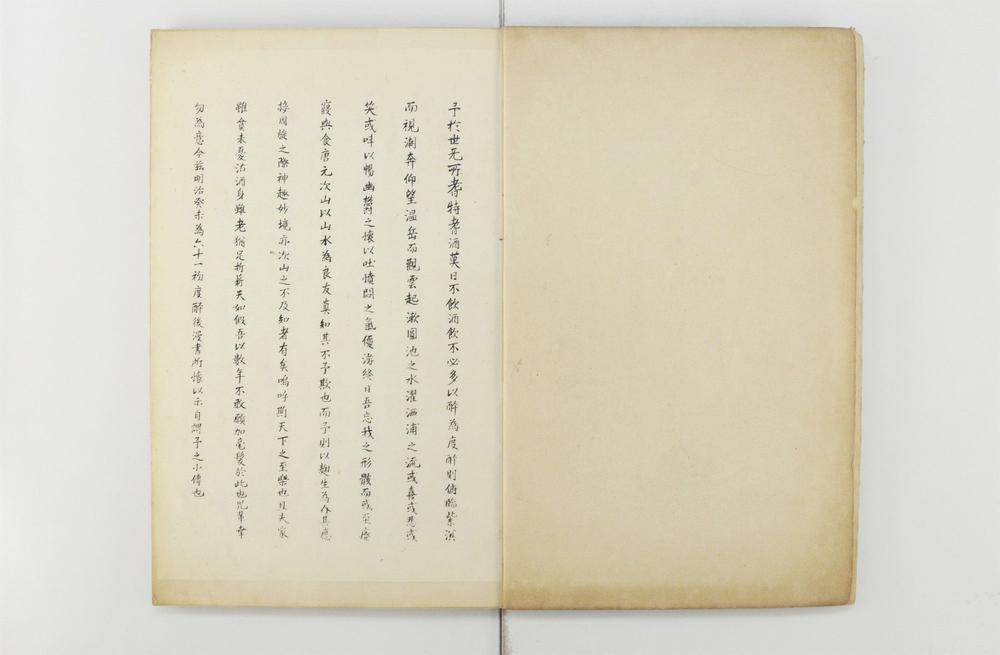 予於世无所耆特耆酒莫日不飲酒飲不必多以醉為度醉則俯臨紫溟
而視潮奔仰望温岳而觀雲起漱圓池之水濯洒浦之流或喜或悲或
笑或哞以暢幽鬱之懷以吐憤悶之氣優游終日吾忘我之形骸而或至廢
寢與食唐元次山以山水為良友真知其不予欺也而予則以麹生為介其應
接周旋之際神趣妙境亦次山之不及知者有矣嗚呼斯天下之至樂也且夫家
雖貧未憂沽酒身雖老猶足折薪天如假吾以數年不敢願加毫髮於此也児輩幸
勿為意今茲明治癸未為六十一初度醉後漫書所懷以示自謂予之小傳也